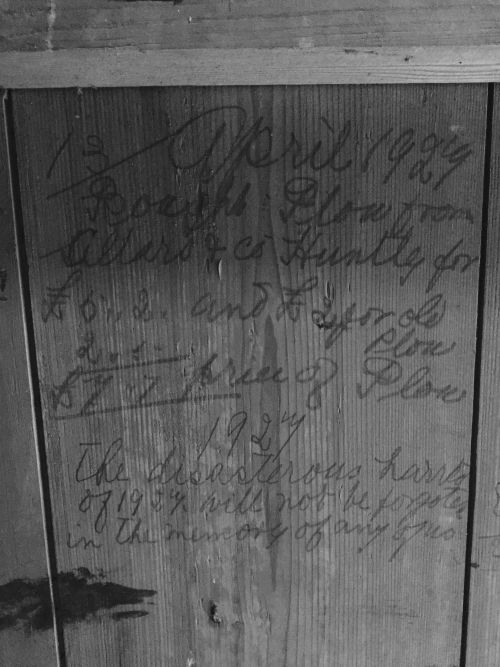 13 April 1929
Bought Plow from
Sellars & co Huntly for
£5.. 2. and £2 for old
2.. 5.. Plow
£7. 7 price of Plow
1927
The disasterous harves
of 1927 will not be forgoten
in the memory of any of us